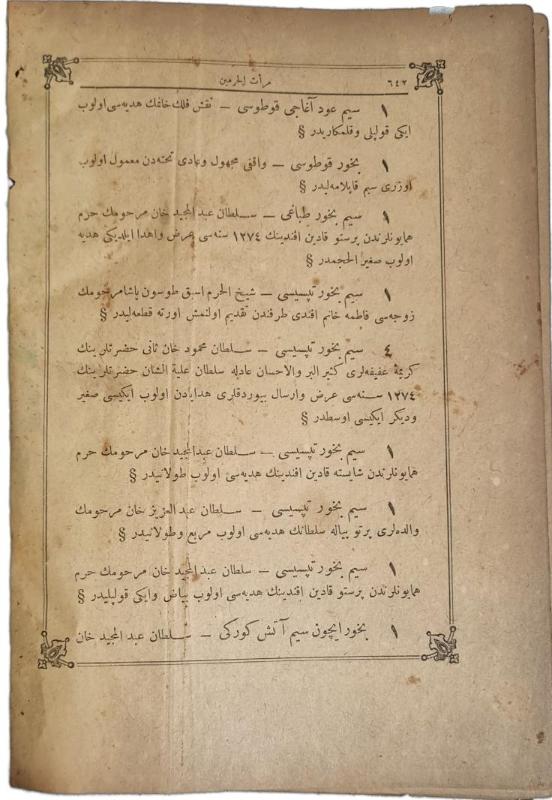 ٦٤٣ مرآت الحرمین
١ سیم عود آغاجی قوطوسی — نقش فلك خانمك هدیه‌سی اولوب
ایکی قولپلی و قلمکاریدر §
١ بخور قوطوسی — واقفی مجهول وعادی تخته‌دن معمول اولوب
اوزری سیم قاپلامه‌لیدر §
١ سیم بخور طباغی — سلطان عبد المجید خان مرحومك حرم
همایونلرندن پرستو قادین افندینك ١٢٧٤ سنه‌سی عرض واهدا ایلدیکی هدیه
اولوب صغیر الحجمدر §
١ سیم بخور تپسیسی — شیخ الحرم اسبق طوسون پاشا مرحومك
زوجه‌سی فاطمه خانم افندی طرفندن تقدیم اولنمش اورته قطعه‌لیدر §
٤ سیم بخور تپسیسی — سلطان محمود خان ثانی حضرتلرینك
کریمهٔ عفیفه‌لری کثیر البر والاحسان عادله سلطان علیة الشان حضرتلرینك
١٢٧٤ سنه‌سی عرض وارسال بیوردقلری هدایادن اولوب ایکیسی صغیر
ودیکر ایکیسی اوسطدر §
١ سیم بخور تپسیسی — سلطان عبد المجید خان مرحومك حرم
همایونلرندن شایسته قادین افندینك هدیه‌سی اولوب طولانیدر §
١ سیم بخور تپسیسی — سلطان عبد العزیز خان مرحومك
والده‌لری پرتو پیاله سلطانك هدیه‌سی اولوب مربع وطولانیدر §
١ سیم بخور تپسیسی — سلطان عبد المجید خان مرحومك حرم
همایونلرندن پرستو قادین افندینك هدیه‌سی اولوب بیاض وایکی قولپلیدر §
١ بخور ایچون سیم آتش کورکی — سلطان عبد المجید خان